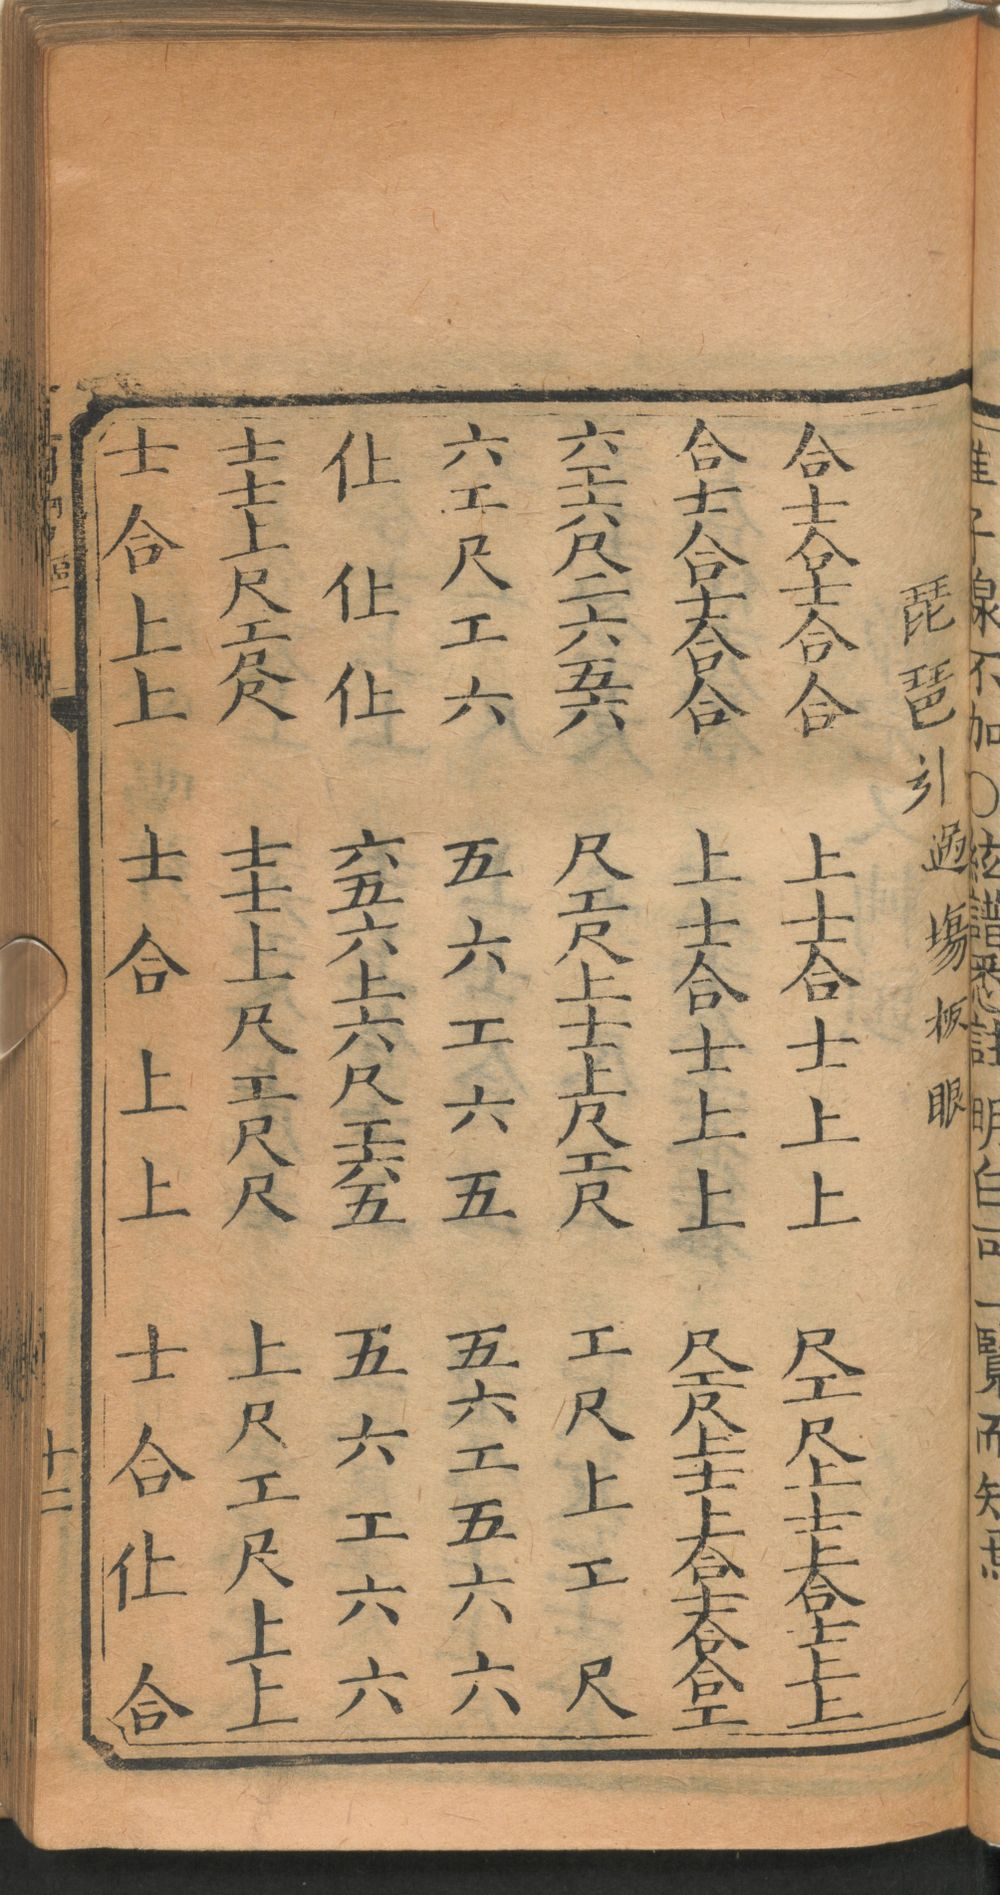 線不加〇絃譜悉註明白可一覽而知
琵琶引 過場板眼
合士合士合合 上士合士上上 尺工尺上士上合士上上
合士合士合合 上士合士上上 尺工尺上士上合士合合工
六工六尺二六五六 尺工尺上士上尺工尺 工尺上工尺
六工尺工六 五六工六五 五六工五六六
仩仩仩 六五六上六尺工六五 五六工六六
士士上尺工尺尺 士士上尺工尺尺 上尺工尺上上
士合上上 士合上上 士合仩合
十二